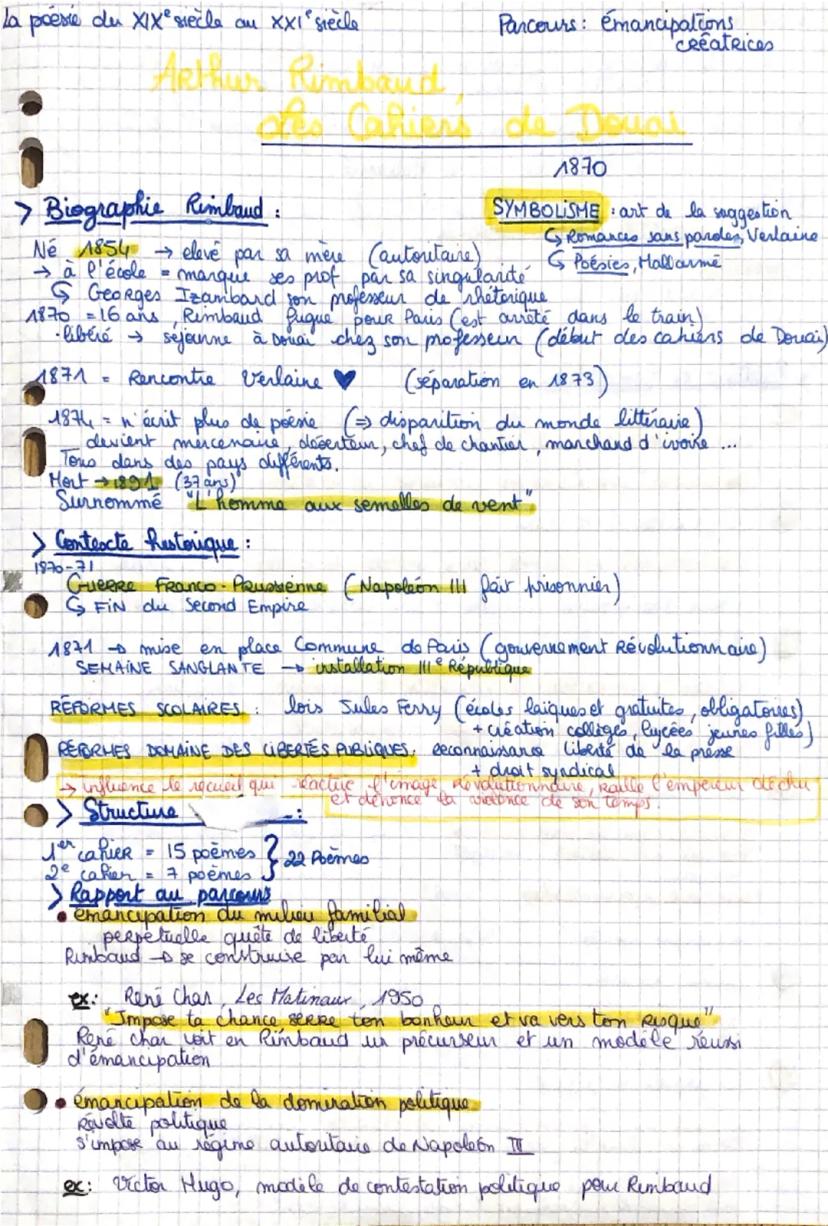 La poésie du XIXe siècle au XXIe siècle
Parcours : émancipations
créatrices
Arthur Rimbaud,
Les Cahiers de Douai
1870
> Biographie Rimbaud :
SYMBOLISME : art de la suggestion
↳ Romances sans paroles, Verlaine
↳ Poésies, Mallarmé
Né 1854 → elevé par sa mère (autoritaire)
→ à l'école = marque ses prof par sa singularité
↳ Georges Izambard son professeur de rhétorique
1870 = 16 ans, Rimbaud fugue pour Paris (est arrêté dans le train)
• libéré → séjourne à Douai chez son professeur (début des cahiers de Douai)
1871 = Rencontre Verlaine ♥ (séparation en 1873)
1874 = n'écrit plus de poésie (⇒ disparition du monde littéraire)
devient mercenaire, déserteur, chef de chantier, marchand d'ivoire ...
Tous dans des pays différents.
Mort → 1891 (37 ans)
Surnommé "L'homme aux semelles de vent"
> Contexte historique :
1870-71
Guerre Franco-Prussienne (Napoléon III fait prisonnier)
↳ FIN du Second Empire
1871 → mise en place Commune de Paris (gouvernement Révolutionnaire)
SEMAINE SANGLANTE → installation IIIe République
RÉFORMES SCOLAIRES : lois Jules Ferry (écoles laïques et gratuites, obligatoires)
+ création collèges, lycées jeunes filles)
RÉFORMES DOMAINE DES LIBERTÉS PUBLIQUES : reconnaissance liberté de la presse
+ droit syndical
→ influence le recueil qui réactive l'image révolutionnaire, raille l'empereur déchu
et dénonce la violence de son temps.
> Structure :
1er cahier = 15 poèmes } 22 Poèmes
2e cahier = 7 poèmes
> Rapport au parcours
• émancipation du milieu familial
perpétuelle quête de liberté
Rimbaud → se construire par lui même
ex : René Char, Les Matinaux, 1950
"Impose ta chance serre ton bonheur et va vers ton risque"
René char voit en Rimbaud un précurseur et un modèle réussi
d'émancipation
• émancipation de la domination politique
Révolte politique
s'impose au régime autoritaire de Napoléon III
ex : Victor Hugo, modèle de contestation politique pour Rimbaud